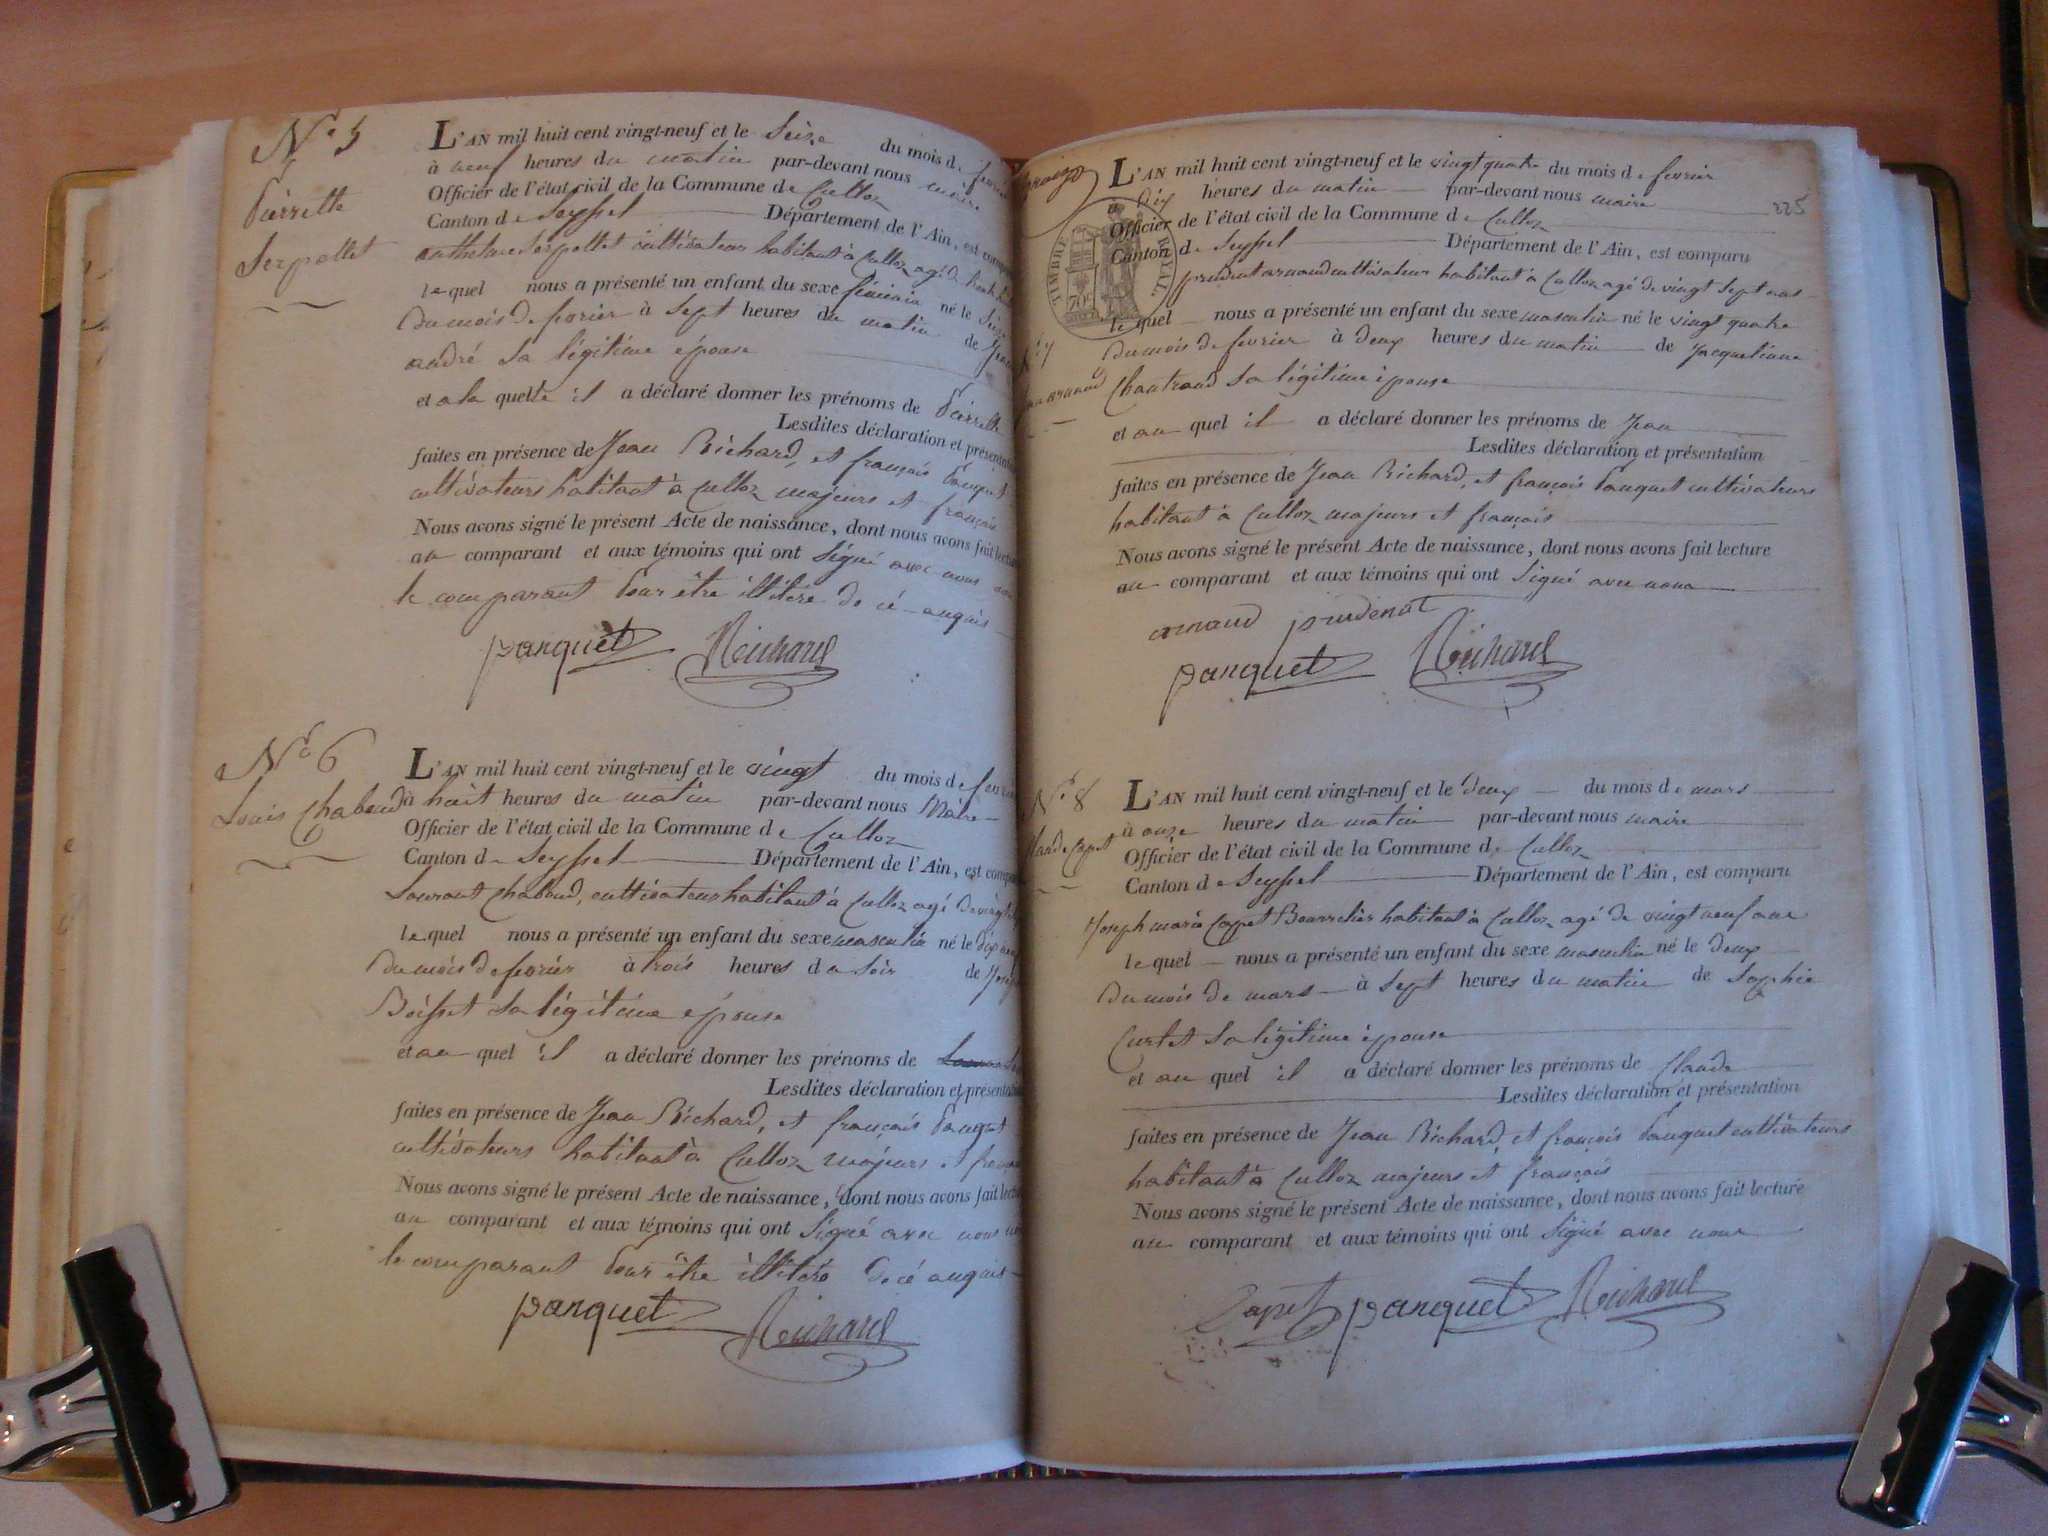 N.º 5
Pierrette
Serpollet
L'AN mil huit cent vingt-neuf et le Seize du mois de fevrier
à neuf heures du matin par-devant nous maire
Officier de l'état civil de la Commune de Culloz
Canton de Seyssel Département de l'Ain, est comparu
anthelme Serpollet cultivateur habitant à Culloz agé de trente
lequel nous a présenté un enfant du sexe féminin né le Seize
du mois de fevrier à Sept heures du matin de
andré Sa légitime épouse
et a la quelle il a déclaré donner les prénoms de Pierrette
Lesdites déclaration et présentation
faites en présence de Jean Richard, et françois Panquet
cultivateurs habitant à Culloz majeurs et français
Nous avons signé le présent Acte de naissance, dont nous avons fait lecture
au comparant et aux témoins qui ont Signé avec nous
le comparant Pour être illitéré de cé enquis
panquet Richard
N.º 6
Louis Chaboud
L'AN mil huit cent vingt-neuf et le vingt du mois de fevrier
à huit heures du matin par-devant nous Maire
Officier de l'état civil de la Commune de Culloz
Canton de Seyssel Département de l'Ain, est comparu
Laurant Chaboud, cultivateur habitant à Culloz agé de
lequel nous a présenté un enfant du sexe masculin né le dix neuf
du mois de fevrier à trois heures du Soir de
Boisset Sa légitime épouse
et au quel il a déclaré donner les prénoms de
Lesdites déclaration et présentation
faites en présence de Jean Richard, et françois Panquet
cultivateurs habitant à Culloz majeurs et français
Nous avons signé le présent Acte de naissance, dont nous avons fait lecture
au comparant et aux témoins qui ont Signé avec nous
le comparant Pour être illitéré de cé enquis
panquet Richard
225
TIMBRE ROYAL
70c
L'AN mil huit cent vingt-neuf et le vingt quatre du mois de fevrier
à dix heures du matin par-devant nous maire
Officier de l'état civil de la Commune de Culloz
Canton de Seyssel Département de l'Ain, est comparu
prudent arnaud cultivateur habitant à Culloz agé de vingt Sept ans
lequel nous a présenté un enfant du sexe masculin né le vingt quatre
du mois de fevrier à deux heures du matin de Jacqueline
Chantraud Sa légitime épouse
et au quel il a déclaré donner les prénoms de Jean
Lesdites déclaration et présentation
faites en présence de Jean Richard, et françois Panquet cultivateurs
habitant à Culloz majeurs et français
Nous avons signé le présent Acte de naissance, dont nous avons fait lecture
au comparant et aux témoins qui ont Signé avec nous
arnaud prudenat
panquet Richard
N.º 8
Claude Capet
L'AN mil huit cent vingt-neuf et le deux du mois de mars
à onze heures du matin par-devant nous maire
Officier de l'état civil de la Commune de Culloz
Canton de Seyssel Département de l'Ain, est comparu
Joseph marie Capet Bourrelier habitant à Culloz agé de vingt neuf ans
lequel nous a présenté un enfant du sexe masculin né le deux
du mois de mars à Sept heures du matin de Sophie
Curtet Sa légitime épouse
et au quel il a déclaré donner les prénoms de Claude
Lesdites déclaration et présentation
faites en présence de Jean Richard, et françois Panquet cultivateurs
habitant à Culloz majeurs et français
Nous avons signé le présent Acte de naissance, dont nous avons fait lecture
au comparant et aux témoins qui ont Signé avec nous
Capet panquet Richard